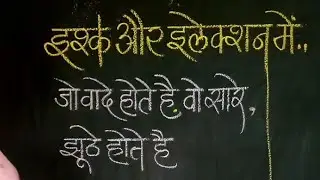 इश्क और इलेक्शन में..
जो वादे होते है, वो सारे,
झूठे होते है